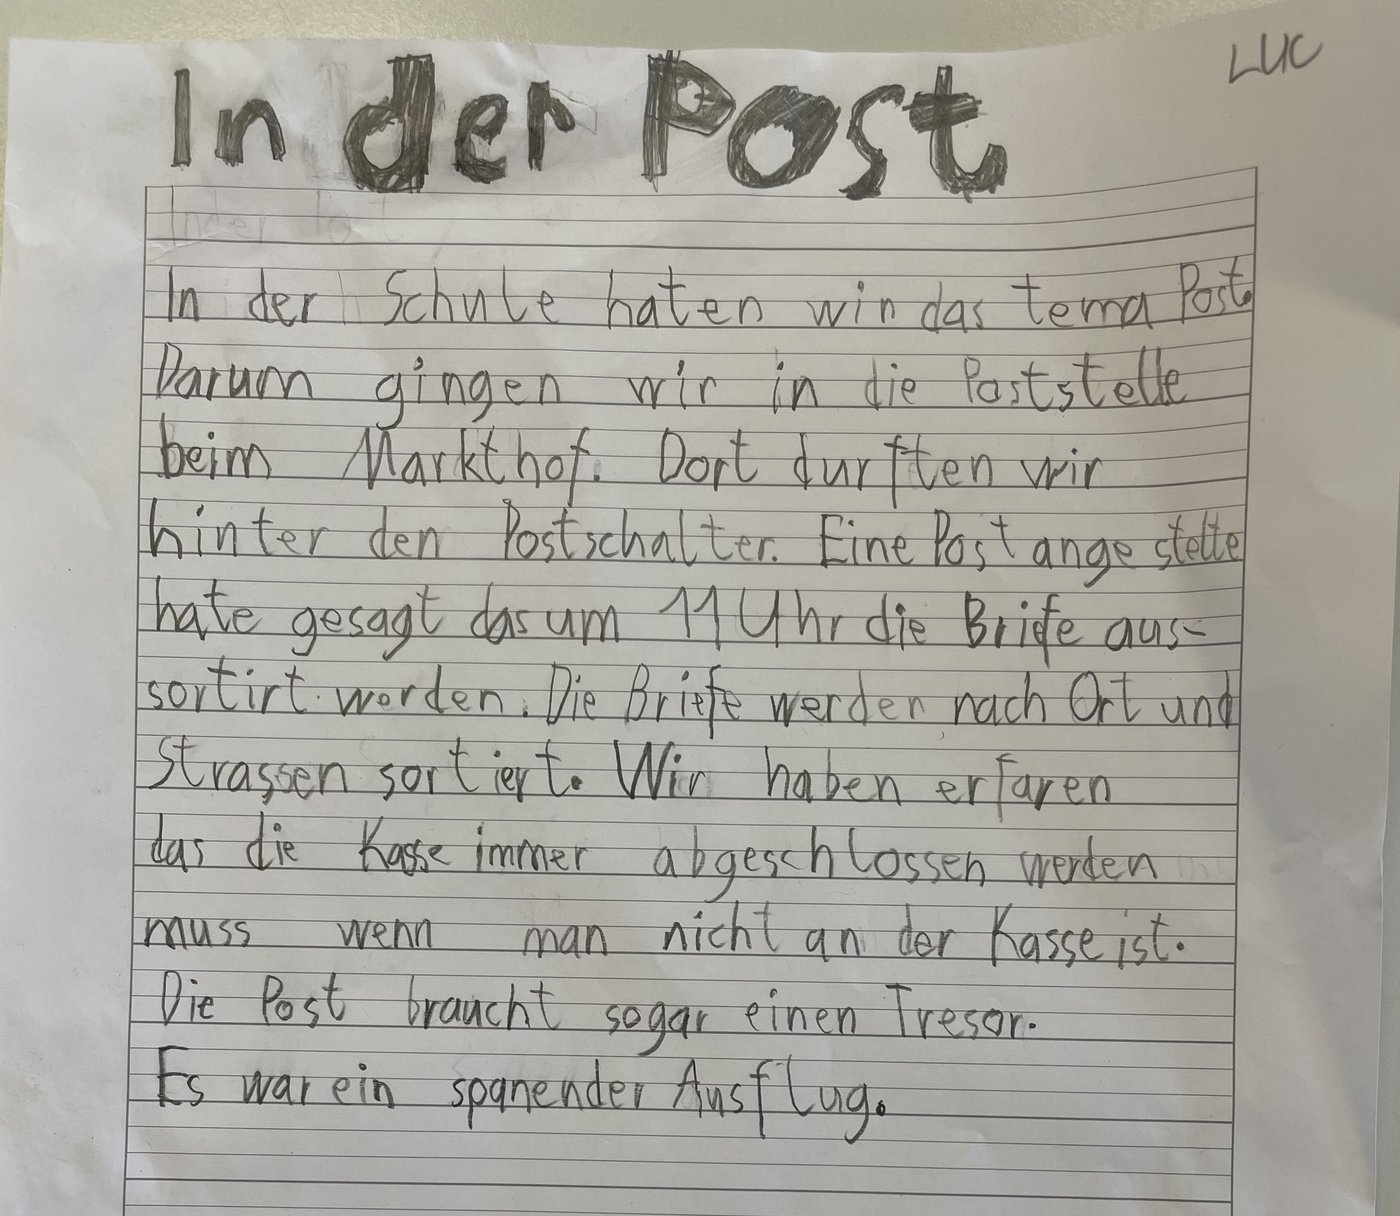 LUC
In der Post
In der Schule haten wir das tema Post.
Darum gingen wir in die Poststelle
beim Markthof. Dort durften wir
hinter den Postschalter. Eine Post angestellte
hate gesagt das um 11 Uhr die Briefe aus-
sortirt werden. Die Briefe werden nach Ort und
Strassen sortiert. Wir haben erfaren
das die Kasse immer abgeschlossen werden
muss wenn man nicht an der Kasse ist.
Die Post braucht sogar einen Tresor.
Es war ein spanender Ausflug.